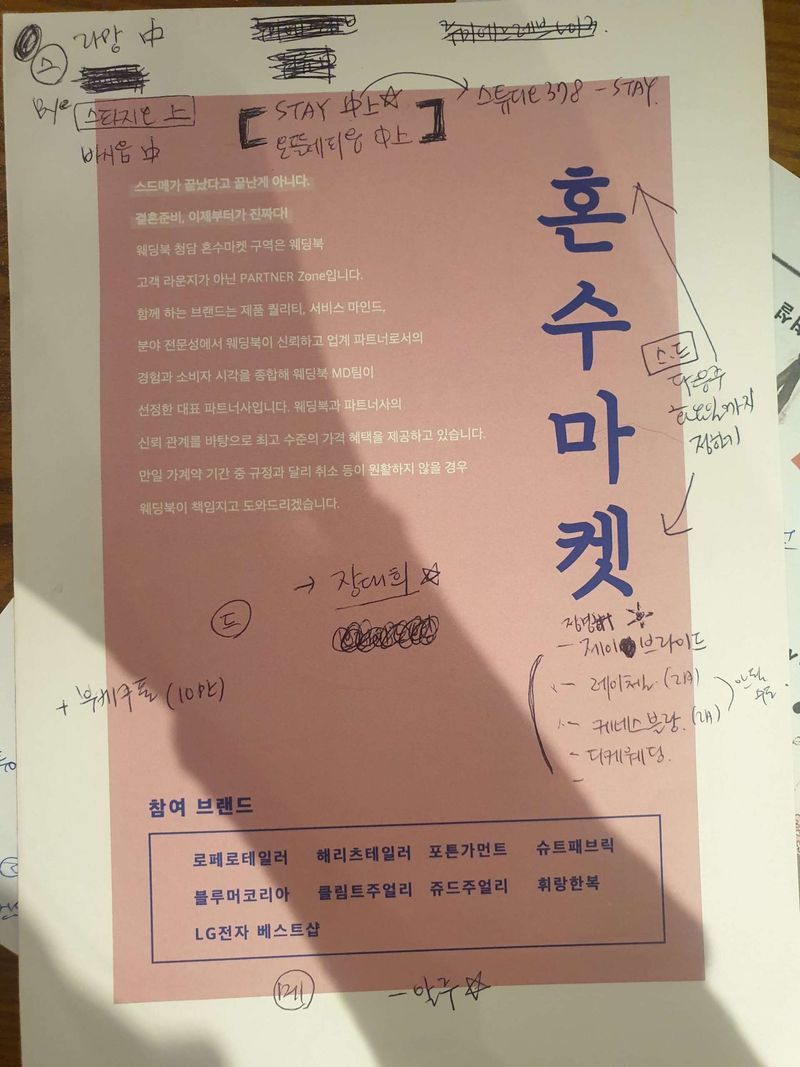 라망 中
스
Bye
스타지오 上
STAY 中上☆
스튜디오 378 - STAY.
바시움 中
온뜰에피움 中上
스드메가 끝났다고 끝난게 아니다.
결혼준비, 이제부터가 진짜다!
웨딩북 청담 혼수마켓 구역은 웨딩북
고객 라운지가 아닌 PARTNER Zone입니다.
함께 하는 브랜드는 제품 퀄리티, 서비스 마인드,
분야 전문성에서 웨딩북이 신뢰하고 업계 파트너로서의
경험과 소비자 시각을 종합해 웨딩북 MD팀이
선정한 대표 파트너사입니다. 웨딩북과 파트너사의
신뢰 관계를 바탕으로 최고 수준의 가격 혜택을 제공하고 있습니다.
만일 가계약 기간 중 규정과 달리 취소 등이 원활하지 않을 경우
웨딩북이 책임지고 도와드리겠습니다.
혼수마켓
스.드
다음주
까지
정하기
→ 장대희 ☆
드
- 제이 브라이드
- 레이첼 (2A)
- 케네스블랑. (2A)
- 디케웨딩.
+ (10만)
참여 브랜드
로페로테일러 해리츠테일러 포튼가먼트 슈트패브릭
블루머코리아 클림트주얼리 쥬드주얼리 휘랑한복
LG전자 베스트샵
메